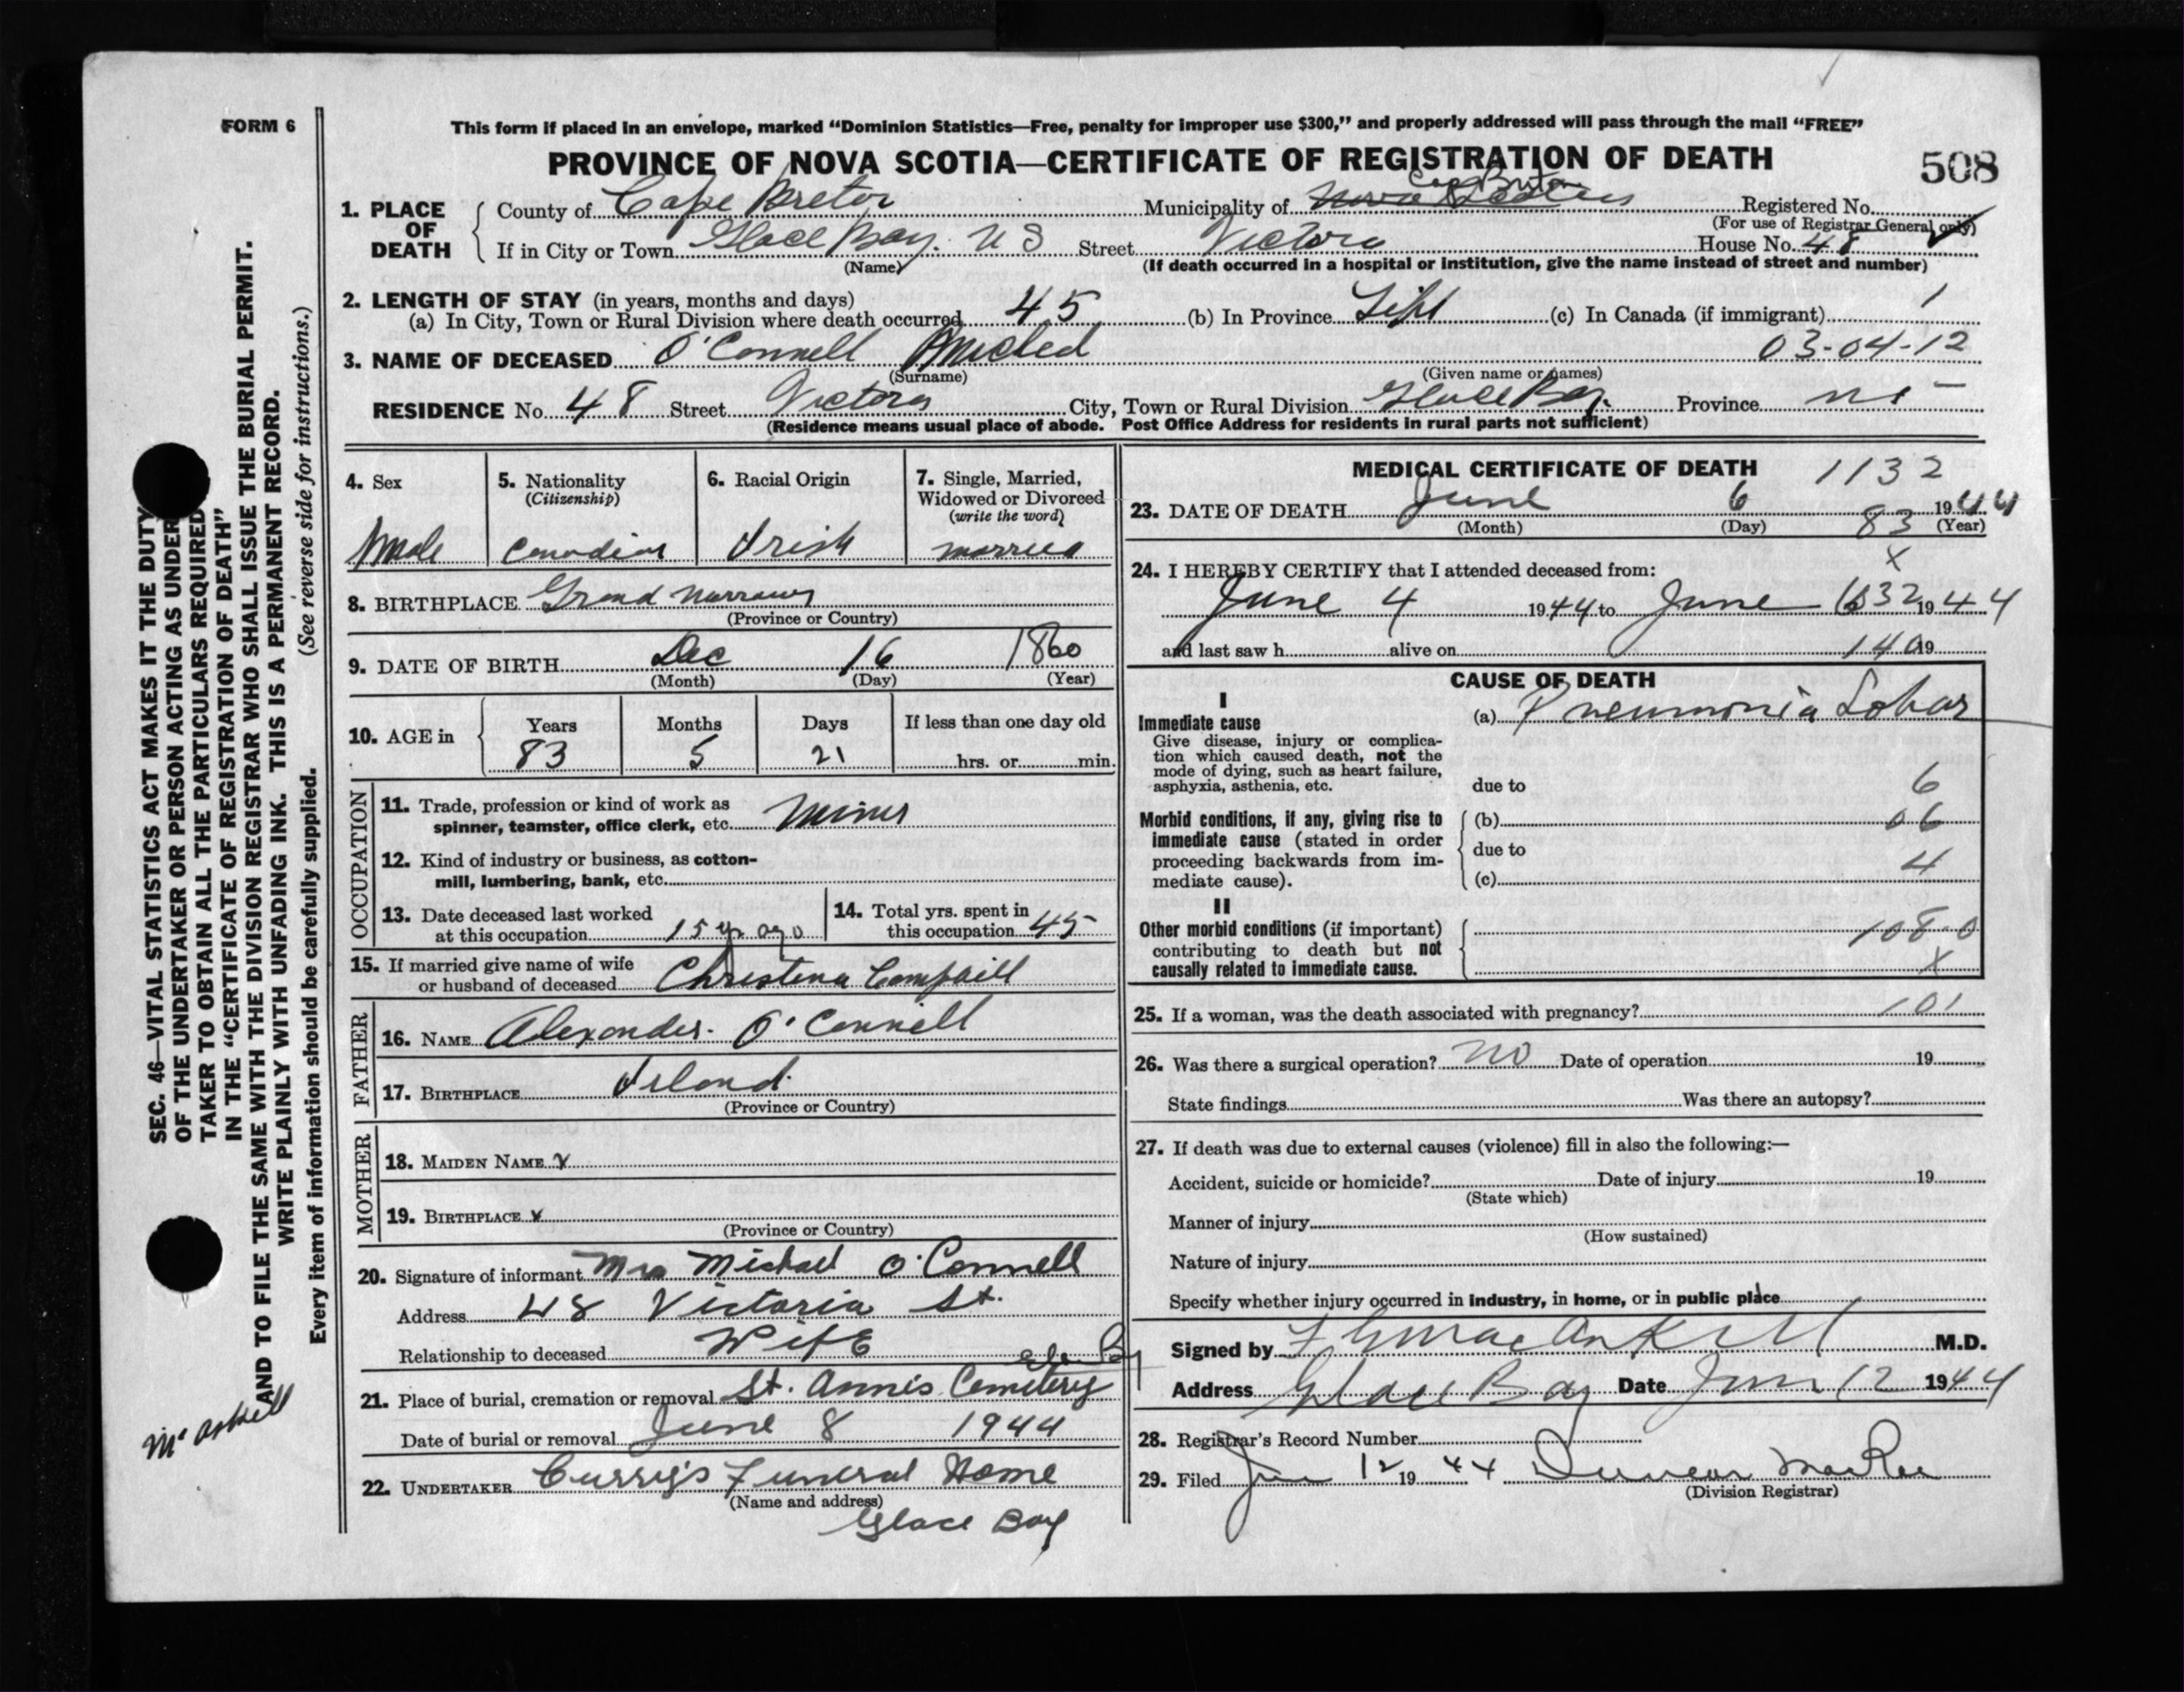 FORM 6
This form if placed in an envelope, marked “Dominion Statistics—Free, penalty for improper use $300,” and properly addressed will pass through the mail “FREE”
PROVINCE OF NOVA SCOTIA—CERTIFICATE OF REGISTRATION OF DEATH
508
1. PLACE OF DEATH
County of Cape Breton Municipality of Cape Breton Registered No.
(For use of Registrar General only)
If in City or Town Glace Bay. N S Street Victoria House No. 48
(Name) (If death occurred in a hospital or institution, give the name instead of street and number)
2. LENGTH OF STAY (in years, months and days)
(a) In City, Town or Rural Division where death occurred 45 (b) In Province Life (c) In Canada (if immigrant) 1
3. NAME OF DECEASED O'Connell Micheal 03-04-12
(Surname) (Given name or names)
RESIDENCE No. 48 Street Victoria City, Town or Rural Division Glace Bay. Province NS
(Residence means usual place of abode. Post Office Address for residents in rural parts not sufficient)
4. Sex
Male
5. Nationality
(Citizenship)
Canadian
6. Racial Origin
Irish
7. Single, Married,
Widowed or Divorced
(write the word)
married
8. BIRTHPLACE Grand Narrows
(Province or Country)
9. DATE OF BIRTH Dec 16 1860
(Month) (Day) (Year)
10. AGE in
Years Months Days If less than one day old
83 5 21 hrs. or min.
OCCUPATION
11. Trade, profession or kind of work as
spinner, teamster, office clerk, etc. Miner
12. Kind of industry or business, as cotton-
mill, lumbering, bank, etc.
13. Date deceased last worked
at this occupation 15 yr ago
14. Total yrs. spent in
this occupation 45
15. If married give name of wife
or husband of deceased Christena Campbell
FATHER
16. NAME Alexander O'Connell
17. BIRTHPLACE Ireland.
(Province or Country)
MOTHER
18. MAIDEN NAME x
19. BIRTHPLACE x
(Province or Country)
20. Signature of informant Mrs Michael O'Connell
Address 48 Victoria St.
Relationship to deceased Wife
Glace Bay
21. Place of burial, cremation or removal St. Annis Cemetery
Date of burial or removal June 8 1944
22. UNDERTAKER Curry's Funeral Home
(Name and address)
Glace Bay
MEDICAL CERTIFICATE OF DEATH 1132
23. DATE OF DEATH June 6 1944
(Month) (Day) 83 (Year)
x
24. I HEREBY CERTIFY that I attended deceased from:
June 4 1944 to June 6 32 1944
and last saw h alive on 140 19
CAUSE OF DEATH
I
Immediate cause
Give disease, injury or complica-
tion which caused death, not the
mode of dying, such as heart failure,
asphyxia, asthenia, etc.
(a) Pneumonia Lobar
due to 6
Morbid conditions, if any, giving rise to
immediate cause (stated in order
proceeding backwards from im-
mediate cause).
(b) 06
due to
(c) 4
II
Other morbid conditions (if important)
contributing to death but not
causally related to immediate cause.
108-0
x
25. If a woman, was the death associated with pregnancy? 101
26. Was there a surgical operation? No Date of operation 19
State findings Was there an autopsy?
27. If death was due to external causes (violence) fill in also the following:—
Accident, suicide or homicide? Date of injury 19
(State which)
Manner of injury
(How sustained)
Nature of injury
Specify whether injury occurred in industry, in home, or in public place
Signed by M.D.
Address Glace Bay Date June 12 1944
28. Registrar's Record Number
29. Filed June 12 19 44 Duncan MacRae
(Division Registrar)
SEC. 46—VITAL STATISTICS ACT MAKES IT THE DUTY
OF THE UNDERTAKER OR PERSON ACTING AS UNDER
TAKER TO OBTAIN ALL THE PARTICULARS REQUIRED
IN THE “CERTIFICATE OF REGISTRATION OF DEATH”
AND TO FILE THE SAME WITH THE DIVISION REGISTRAR WHO SHALL ISSUE THE BURIAL PERMIT.
WRITE PLAINLY WITH UNFADING INK. THIS IS A PERMANENT RECORD.
Every item of information should be carefully supplied. (See reverse side for instructions.)
Mc Askill